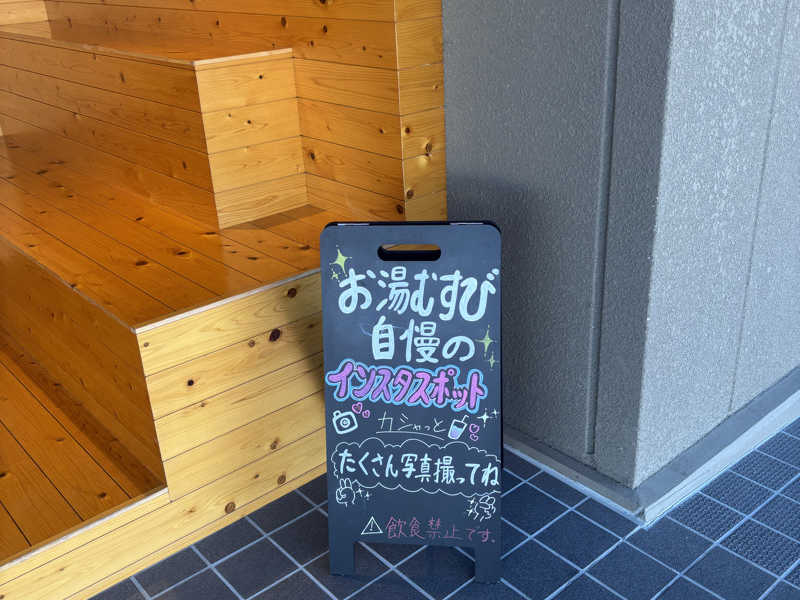 お湯むすび
自慢の
インスタスポット
カシャっと
たくさん写真撮ってね
飲食禁止です。